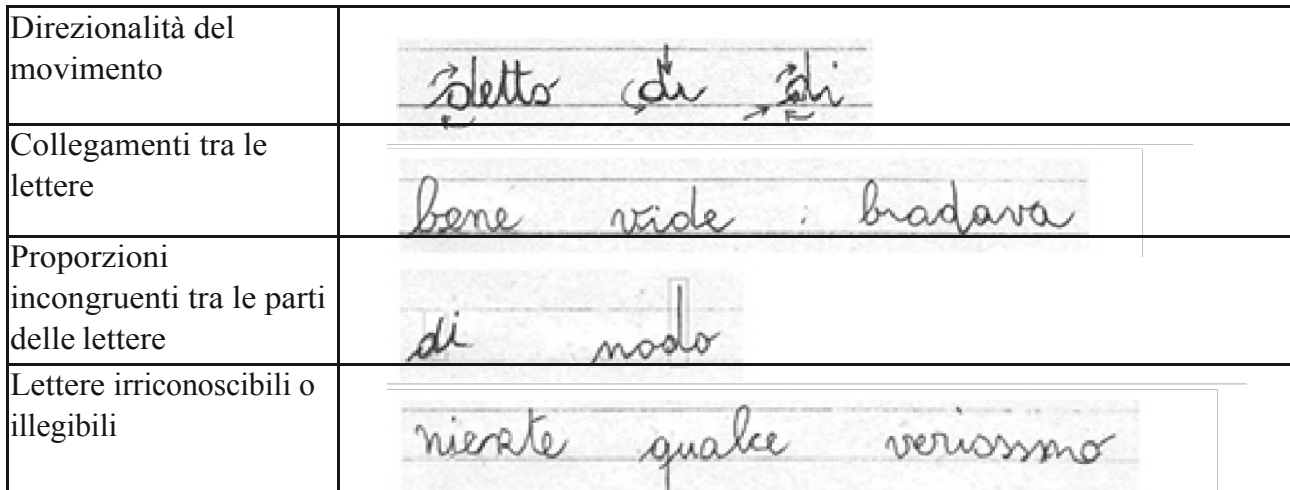 Direzionalità del
movimento
detto di di
Collegamenti tra le
lettere
bene vide : bradava
Proporzioni
incongruenti tra le parti
delle lettere
di nodo
Lettere irriconoscibili o
illegibili
niente qualce verissmo